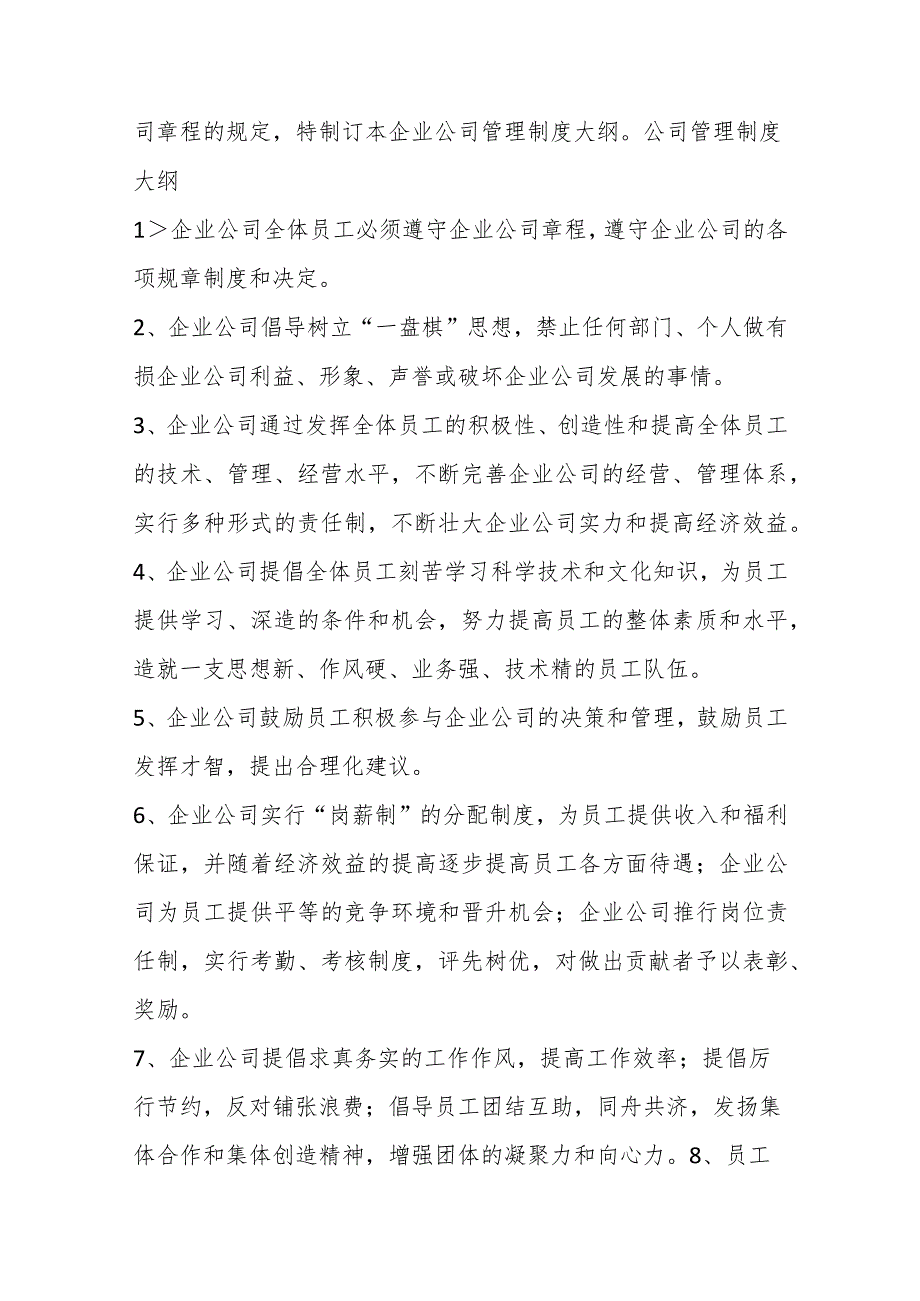 司章程的规定，特制订本企业公司管理制度大纲。公司管理制度
大纲
1＞企业公司全体员工必须遵守企业公司章程，遵守企业公司的各
项规章制度和决定。
2、企业公司倡导树立“一盘棋”思想，禁止任何部门、个人做有
损企业公司利益、形象、声誉或破坏企业公司发展的事情。
3、企业公司通过发挥全体员工的积极性、创造性和提高全体员工
的技术、管理、经营水平，不断完善企业公司的经营、管理体系，
实行多种形式的责任制，不断壮大企业公司实力和提高经济效益。
4、企业公司提倡全体员工刻苦学习科学技术和文化知识，为员工
提供学习、深造的条件和机会，努力提高员工的整体素质和水平，
造就一支思想新、作风硬、业务强、技术精的员工队伍。
5、企业公司鼓励员工积极参与企业公司的决策和管理，鼓励员工
发挥才智，提出合理化建议。
6、企业公司实行“岗薪制”的分配制度，为员工提供收入和福利
保证，并随着经济效益的提高逐步提高员工各方面待遇；企业公
司为员工提供平等的竞争环境和晋升机会；企业公司推行岗位责
任制，实行考勤、考核制度，评先树优，对做出贡献者予以表彰、
奖励。
7、企业公司提倡求真务实的工作作风，提高工作效率；提倡厉
行节约，反对铺张浪费；倡导员工团结互助，同舟共济，发扬集
体合作和集体创造精神，增强团体的凝聚力和向心力。8、员工